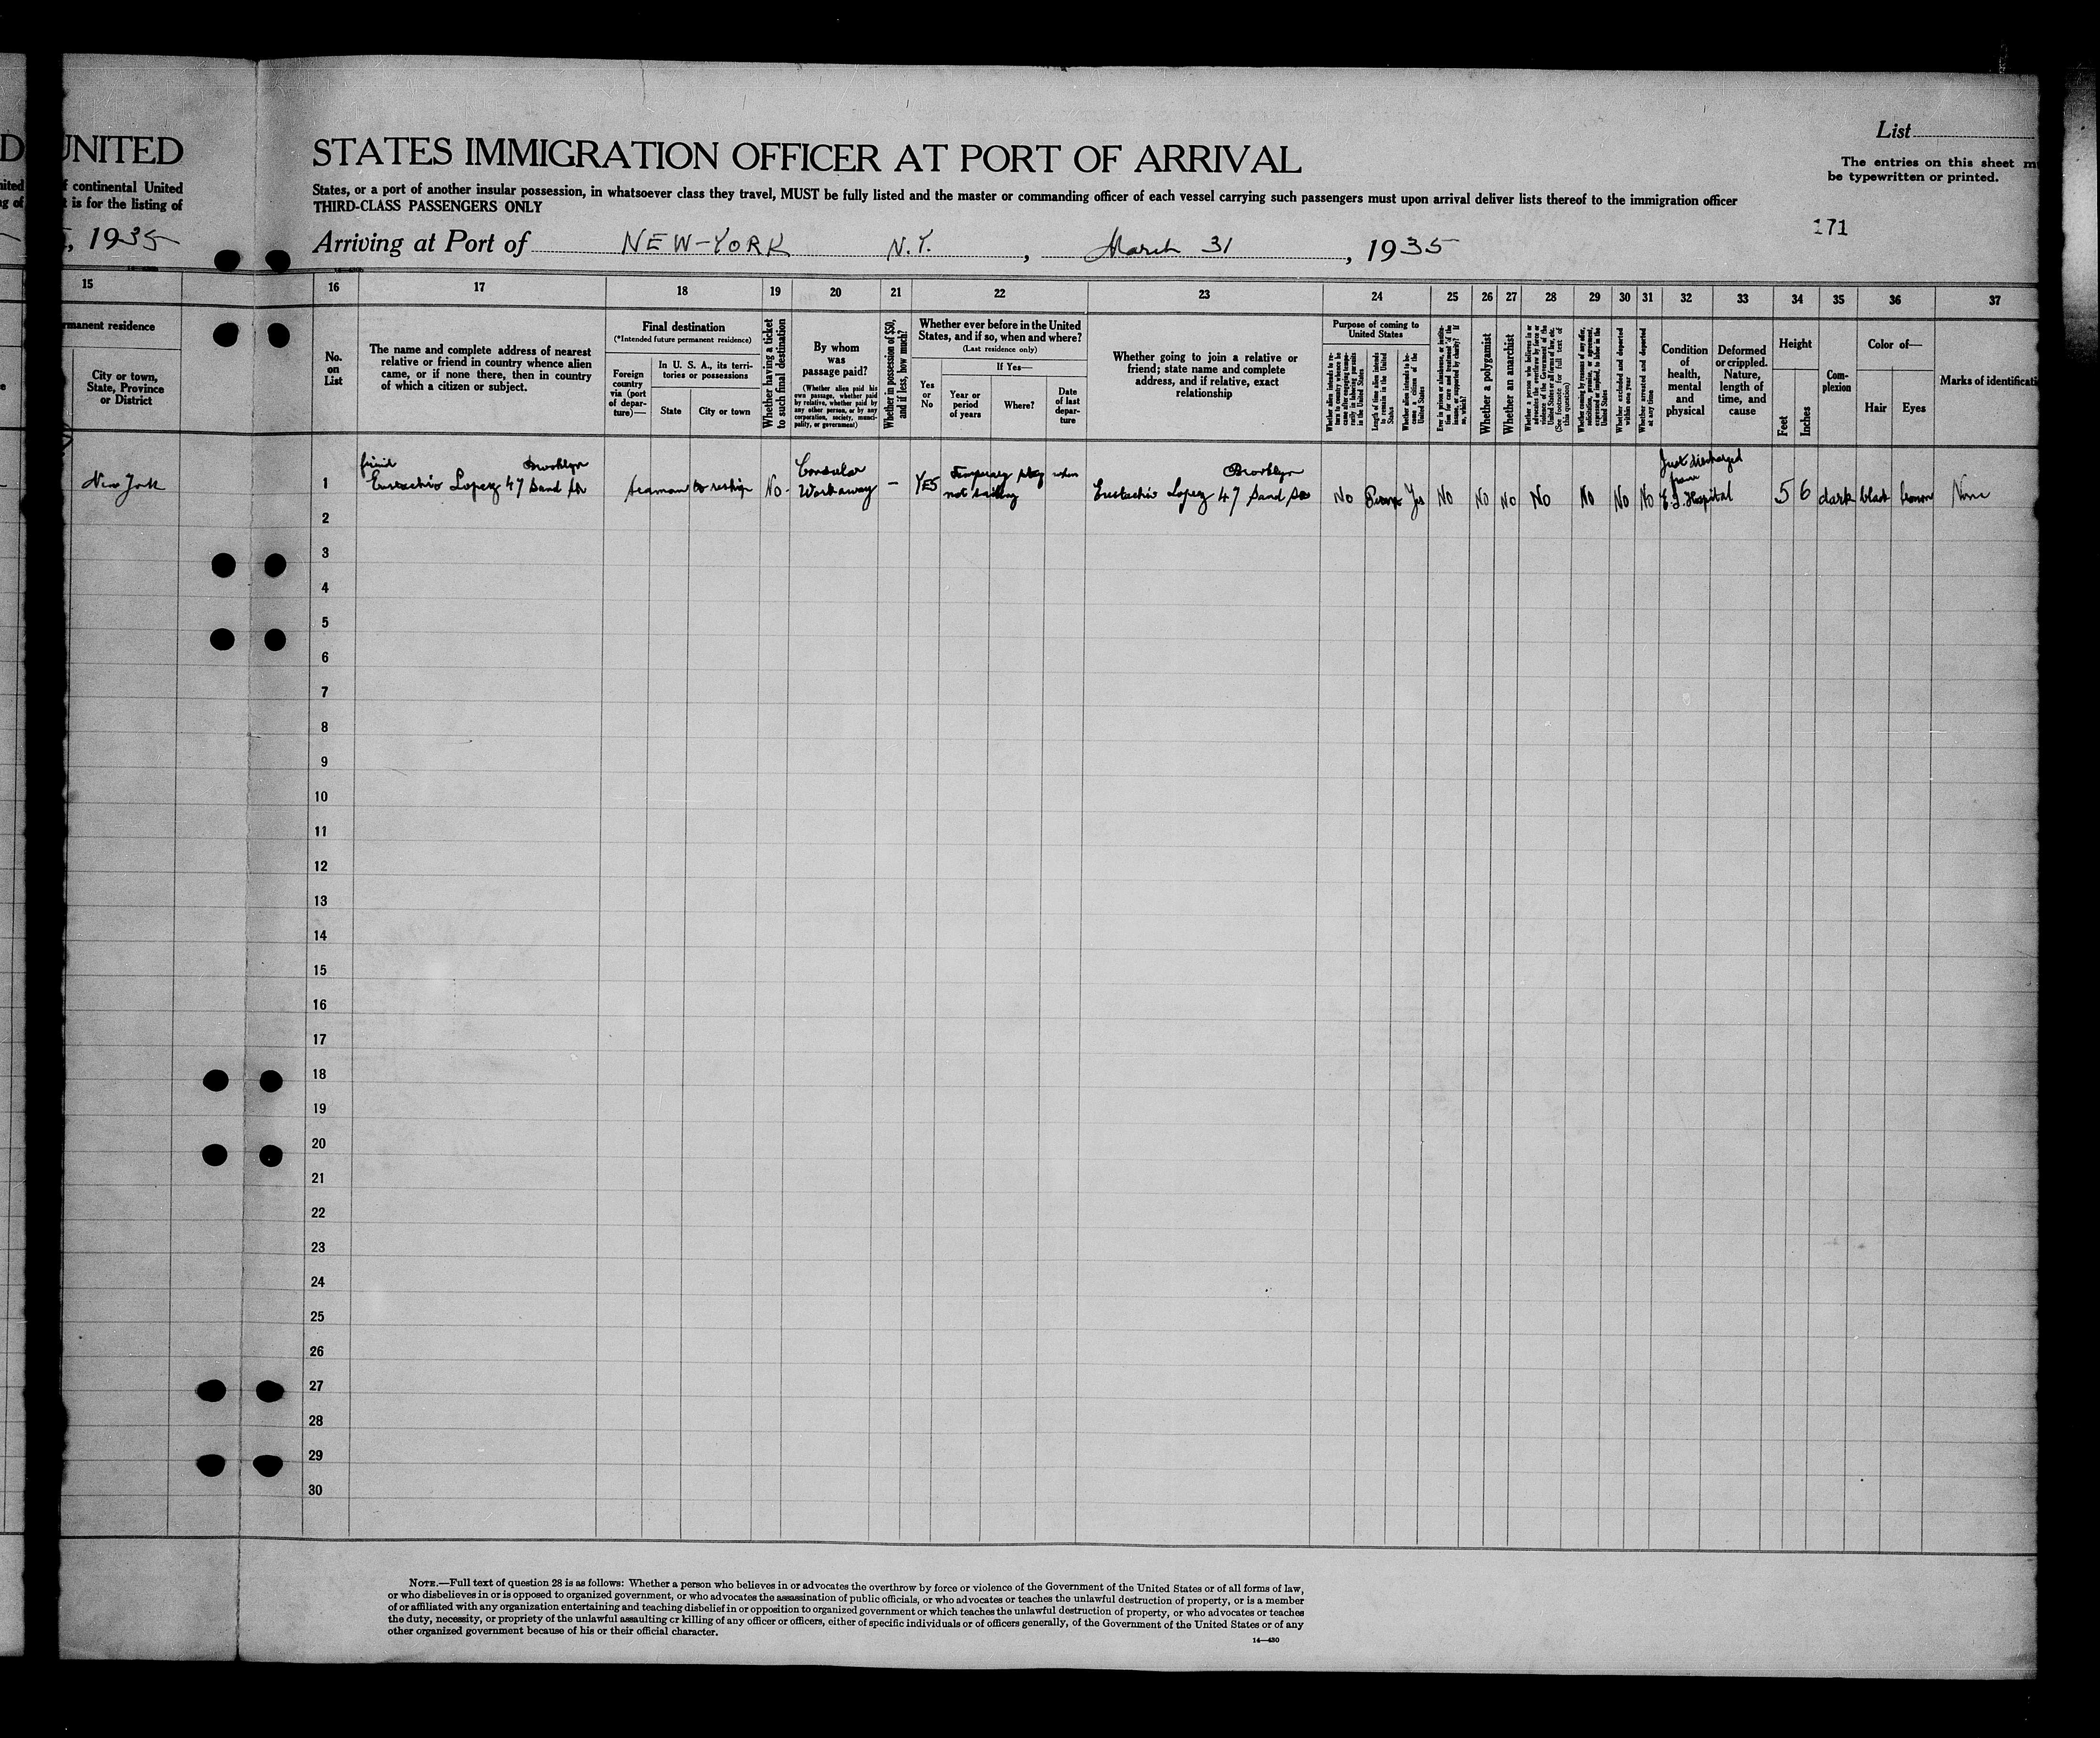 D
UNITED
STATES IMMIGRATION OFFICER AT PORT OF ARRIVAL
List
The entries on this sheet m
be typewritten or printed.
nited
ng of
f continental United
t is for the listing of
States, or a port of another insular possession, in whatsoever class they travel, MUST be fully listed and the master or commanding officer of each vessel carrying such passengers must upon arrival deliver lists thereof to the immigration officer
THIRD-CLASS PASSENGERS ONLY
171
, 1935
Arriving at Port of NEW-YORK N.Y. , March 31 , 1935
15
16 17 18 19 20 21 22 23 24 25 26 27 28 29 30 31 32 33 34 35 36 37
rmanent residence
City or town,
State, Province
or District
No.
on
List
The name and complete address of nearest
relative or friend in country whence alien
came, or if none there, then in country
of which a citizen or subject.
Final destination
(*Intended future permanent residence)
Foreign
country
via (port
of depar-
ture)—
In U. S. A., its terri-
tories or possessions
State
City or town
Whether having a ticket
to such final destination
By whom
was
passage paid?
(Whether alien paid his
own passage, whether paid
by relative, whether paid by
any other person, or by any
corporation, society, munici-
pality, or government)
Whether in possession of $50,
and if less, how much?
Whether ever before in the United
States, and if so, when and where?
(Last residence only)
Yes
or
No
If Yes—
Year or
period
of years
Where?
Date
of last
depar-
ture
Whether going to join a relative or
friend; state name and complete
address, and if relative, exact
relationship
Purpose of coming to
United States
Whether alien intends to re-
turn to country whence he
came after engaging tempo-
rarily in laboring pursuits
in the United States
Length of time alien intends
to remain in the United
States
Whether alien intends to be-
come a citizen of the
United States
Ever in prison or almshouse, or institu-
tion for care and treatment of the
insane, or supported by charity? If
so, which?
Whether a polygamist
Whether an anarchist
Whether a person who believes in or
advocates the overthrow by force or
violence of the Government of the
United States or all forms of law, etc.
(See footnote for full text of
this question)
Whether coming by reason of any offer,
solicitation, promise, or agreement,
expressed or implied, to labor in the
United States
Whether excluded and deported
within one year
Whether arrested and deported
at any time
Condition
of
health,
mental
and
physical
Deformed
or crippled.
Nature,
length of
time, and
cause
Height
Feet
Inches
Com-
plexion
Color of—
Hair
Eyes
Marks of identificati
New York
1
friend Brooklyn
Eustachio Lopez 47 Sand St
Seaman to reship
No-
Consular
Workaway
—
YES
Temporary stay when
not sailing
Brooklyn
Eustachio Lopez 47 Sand
No
Yes
No
No
No
No
No
No
No
Just discharged
from
E.I. Hospital
5 6
dark
black
brown
None
2
3
4
5
6
7
8
9
10
11
12
13
14
15
16
17
18
19
20
21
22
23
24
25
26
27
28
29
30
NOTE.—Full text of question 28 is as follows: Whether a person who believes in or advocates the overthrow by force or violence of the Government of the United States or of all forms of law,
or who disbelieves in or is opposed to organized government, or who advocates the assassination of public officials, or who advocates or teaches the unlawful destruction of property, or is a member
of or affiliated with any organization entertaining and teaching disbelief in or opposition to organized government or which teaches the unlawful destruction of property, or who advocates or teaches
the duty, necessity, or propriety of the unlawful assaulting or killing of any officer or officers, either of specific individuals or of officers generally, of the Government of the United States or of any
other organized government because of his or their official character.
14—430